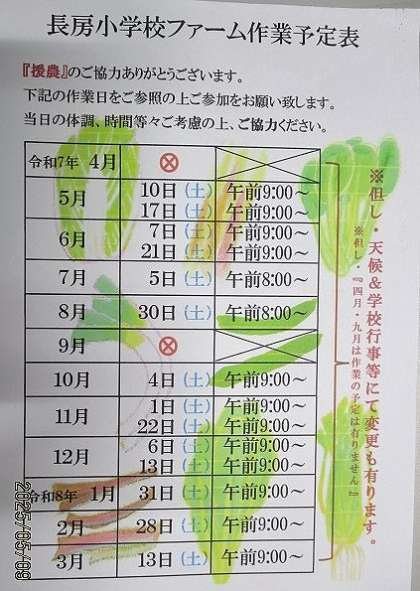 長房小学校ファーム作業予定表
『援農』のご協力ありがとうございます。
下記の作業日をご参照の上ご参加をお願い致します。
当日の体調、時間等々ご考慮の上、ご協力ください。
令和7年 4月 ⊗
5月 10日(土) 午前9:00～
17日(土) 午前9:00～
6月 7日(土) 午前9:00～
21日(土) 午前9:00～
7月 5日(土) 午前8:00～
8月 30日(土) 午前8:00～
9月 ⊗
10月 4日(土) 午前9:00～
11月 1日(土) 午前9:00～
22日(土) 午前9:00～
12月 6日(土) 午前9:00～
13日(土) 午前9:00～
令和8年 1月 31日(土) 午前9:00～
2月 28日(土) 午前9:00～
3月 13日(土) 午前9:00～
※但し・天候&学校行事等にて変更も有ります。
※但し・『四月・九月は作業の予定は有りません』
2025/05/09